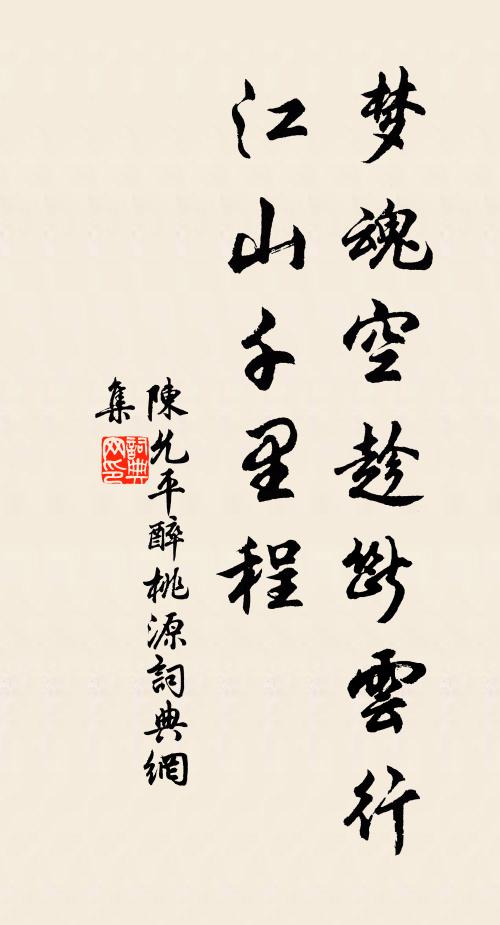 梦魂空趁斷雲行
江山千里程
陳允平醉桃源詞典網
集
詞典
网印